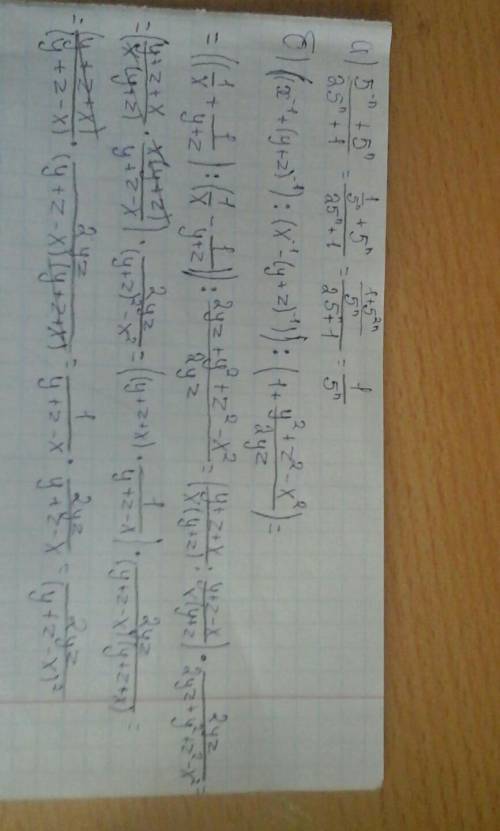 а) (5⁻ⁿ + 5ⁿ)/(25ⁿ + 1) = (1/5ⁿ + 5ⁿ)/(25ⁿ + 1) = ((1 + 5²ⁿ)/5ⁿ)/(25ⁿ + 1) = 1/5ⁿ
б) ((x⁻¹ + (y+z)⁻¹) : (x⁻¹ - (y+z)⁻¹)) : (1 + (y² + z² - x²)/(2yz)) =
= ((1/x + 1/(y+z)) : (1/x - 1/(y+z))) : (2yz + y² + z² - x²)/(2yz) = ((y+z+x)/(x(y+z)) : (y+z-x)/(x(y+z))) · 2yz/(2yz + y² + z² - x²) =
= ((y+z+x)/(x(y+z)) · x(y+z)/(y+z-x)) · 2yz/((y+z)² - x²) = ((y+z+x) · 1/(y+z-x)) · 2yz/((y+z-x)(y+z+x)) =
= (y+z+x)/(y+z-x) · 2yz/((y+z-x)(y+z+x)) = 1/(y+z-x) · 2yz/(y+z-x) = 2yz/(y+z-x)²